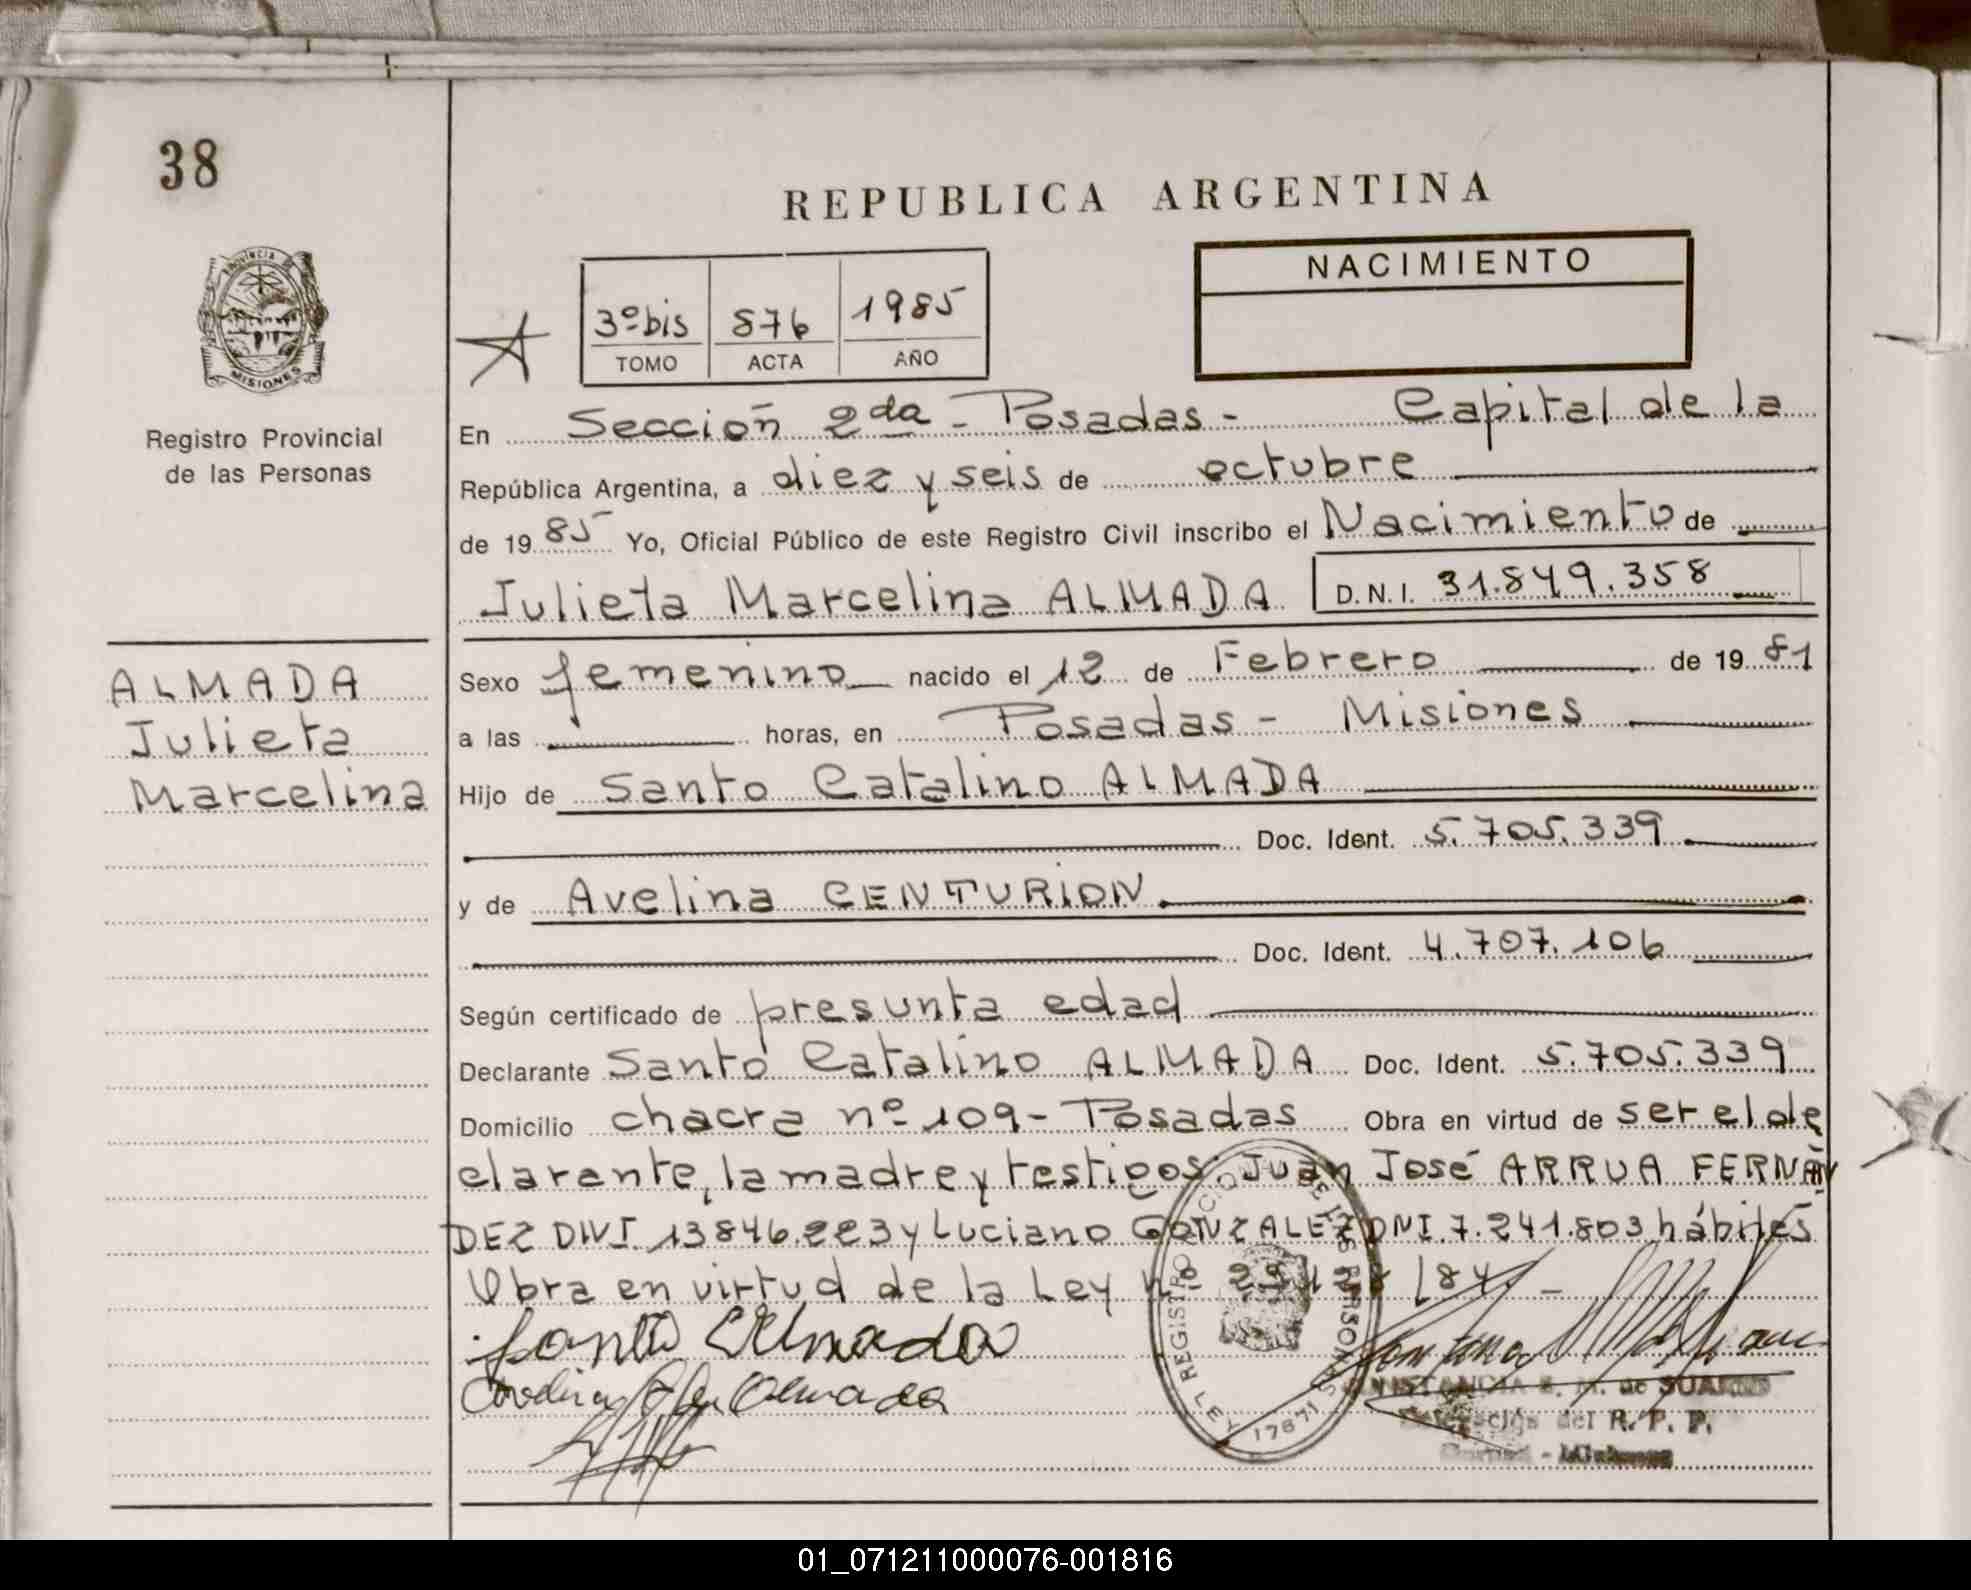 38
REPUBLICA ARGENTINA
NACIMIENTO
3º bis 876 1985
TOMO ACTA AÑO
Provincia
MISIONES
Registro Provincial
de las Personas
En Sección 2da - Posadas - Capital de la
República Argentina, a diez y seis de octubre
de 1985 Yo, Oficial Público de este Registro Civil inscribo el Nacimiento de
Julieta Marcelina ALMADA D.N.I. 31.849.358
ALMADA
Julieta
Marcelina
Sexo femenino nacido el 12 de Febrero de 1981
a las horas, en Posadas - Misiones
Hijo de Santo Catalino ALMADA
Doc. Ident. 5.705.339
y de Avelina CENTURION
Doc. Ident. 4.707.106
Según certificado de presunta edad
Declarante Santo Catalino ALMADA Doc. Ident. 5.705.339
Domicilio chacra nº 109 - Posadas Obra en virtud de ser el de
clarante, la madre y testigos: Juan José ARRUA FERNAN
DEZ DNI. 13846.223 y Luciano GONZALEZ DNI. 7.241.803 hábiles
Obra en virtud de la Ley nº /84 -
Santo Almada
Almada
REGISTRO DE LAS PERSONAS
17671
S. M. de SUAREZ
Delegación del R. P. P.
- Misiones
01_071211000076-001816